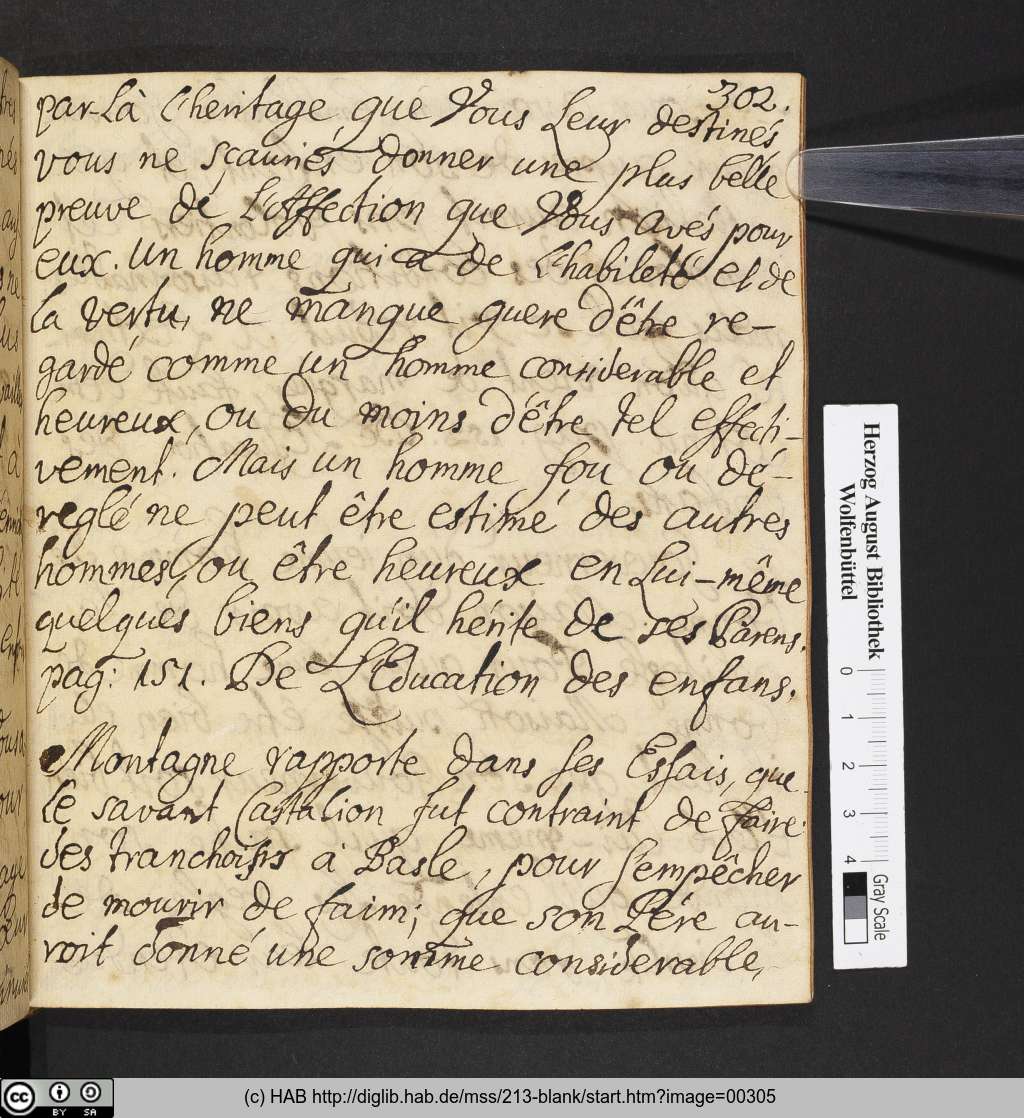 302.
par-là l'heritage, que Vous Leur destinés
vous ne sçauriés donner une plus belle
preuve de L'Affection que Vous avés pour
eux. Un homme qui a de l'habileté et de
la vertu, ne manque guere d'être re-
gardé comme un homme considerable et
heureux, ou du moins d'être tel effecti-
vement. Mais un homme fou ou dé-
reglé ne peut être estimé des autres
hommes, ou être heureux en Lui-même
quelques biens qu'il hérite de ses Parens.
pag: 151. De L'Education des enfans.
Montagne rapporte dans ses Essais, que
le savant Castalion fut contraint de faire
des tranchoirs à Basle, pour s'empêcher
de mourir de faim; que son Pére au-
roit donné une somme considerable,
Herzog August Bibliothek
Wolfenbüttel
0 1 2 3 4
Gray Scale
cc BY SA
(c) HAB http://diglib.hab.de/mss/213-blank/start.htm?image=00305